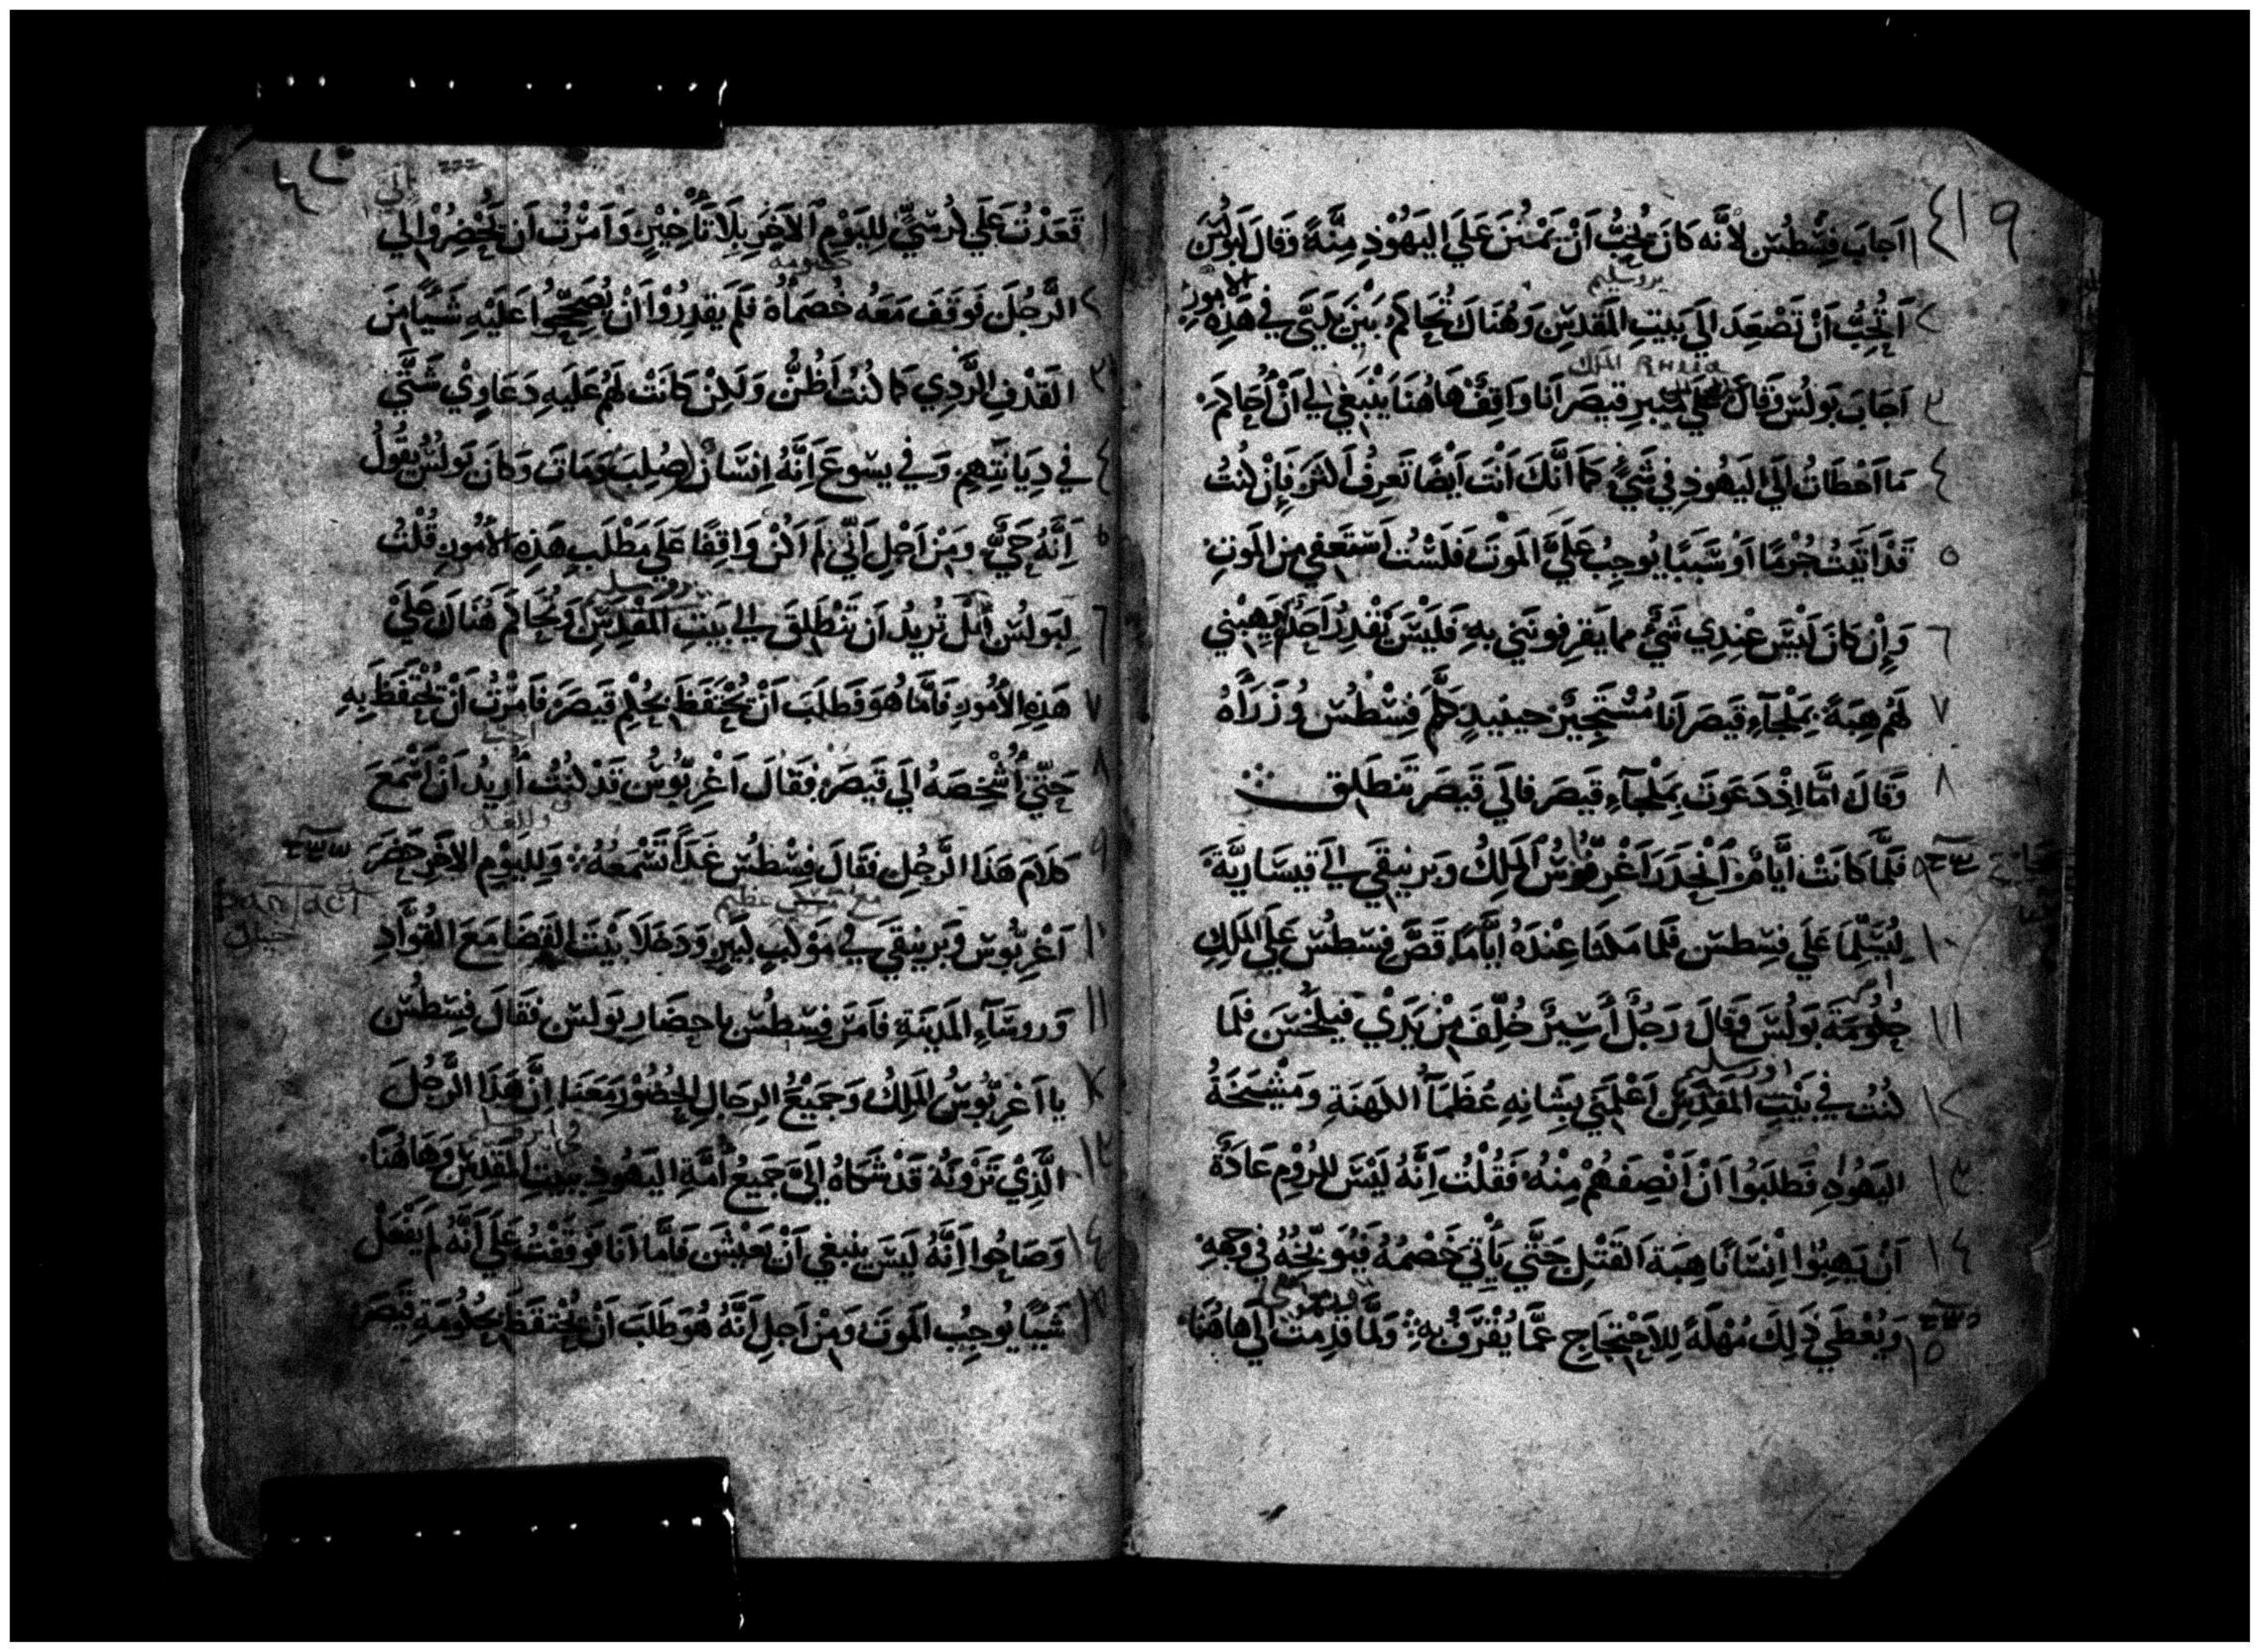 ٤١٩
١ اَجابَ فِسْطُس لأنَّه كانَ يُحِبُّ اَنْ يَمْتَن عَلَي اليَهُوْدِ مِنَّةً وَقالَ لبَولُسَ
يروسليم
٢ اَتُحِبُّ اَنْ تَصْعَدَ الي بَيتِ المَقدِسِ وَهُنَاكَ تُحَاكَم بَيْنَ يَدَيَّ في هَذِهِ الامور
الملك
٣ اَجَابَ بَولُس وَقالَ عَلي مِنبرِ قيصَر انا وَاقِفٌ هَاهُنَا يَنْبَغي لي اَنْ اُحَاكمَ
٤ مَا اَخْطَات اِلَي اليَهُودِ في شَيْءٍ كَما اَنَّكَ اَنْتَ اَيْضًا تَعرِفُ اكثَر فَاِنْ كنتُ
٥ قَد اَتَيتُ جُرْمًا اَوْ سَبَبًا يُوجِبُ عَلَيَّ المَوتَ فَلَسْتُ اَسْتَعفي مِنَ المَوتِ
٦ وَاِن كانَ لَيْسَ عِندِي شَيْء مما يَقرِفونَني بهِ فَلَيْسَ يَقْدِرُ اَحَدٌ يَهِبُني
٧ لَهُم هِبَةً بِمَلْجَآءِ قَيصَر انا مُسْتَجِيْرٌ حينَيدٍ كَلَّمَ فِسْطُس وُزَرَاَهُ
٨ وَقالَ امَّا اِذْ دَعَوتَ بِمَلْجآءِ قَيصَر فالَي قَيصَر تَنطَلِق
٩ فلَمَّا كانَتْ ايَّامٌ انْحَدَرَ اَغْرِبُّوسُ المَلِكُ وَبَرنيقَي الي قَيسَاريَّةَ
١٠ لِيُسَلِّمَا عَلَي فِسْطس فلَما مَكثا عِنْدَهُ ايَّامًا قَصَّ فِسْطُس عَلَي المَلِكِ
١١ حُكُومَةَ بَولُسَ وَقالَ رَجُلٌ اَسِيرٌ خُلِّفَ مِنْ يَدَيْ فيلِخُسَ فَلَما
اورسليم
١٢ كنتُ في بَيْتِ المَقدِسِ اَعْلَمَني بِشَانِهِ عُظَمَآ الكهنَةِ وَمَشْيَخَةُ
١٣ اليَهُودِ فَطَلَبُوا اَنْ اَنْصِفَهُمْ مِنْهُ فَقُلتُ اَنَّهُ لَيْسَ للرُوْمِ عَادَةٌ
١٤ اَنْ يَهِبُوا اِنْسَانًا هِبَة القَتْلِ حَتَّي يَأْتيَ خَصْمُهُ فيُوَبِّخُهُ في وَجههِ
١٥ وَيُعْطَي ذَلِكَ مُهْلَةً لِلاحْتِجَاجِ عَمَّا يُقْرَفُ بهِ وَلمَّا قدِمتُ الَي هَاهُنَا
الي
١ قَعَدْتُ عَلَي كُرسيِّ لِليَوْمِ الاَخَرِ بِلا تَأْخيْرٍ وَاَمَرْتُ اَن يُحْضِرُوْا الي
حكومه
٢ الرَّجُلَ فَوَقَفَ مَعَهُ خُصَمَاؤُهُ فَلَم يَقدِرُوْا اَنْ يُصَحِّحُوا عَلَيْهِ شَيًّا مِنَ
٣ القَذْفِ الرَّدِي كَما كُنْتُ اَظُنُّ وَلَكِنْ كانَتْ لَهُم عَلَيهِ دَعَاوِيْ شَتَّي
٤ في دِيَانَتِهِم وَفي يسوعَ اَنَّهُ اِنسَانٌ صُلِبَ وَمَاتَ وَكانَ بَولُسُ يَقُولُ
٥ اَنَّهُ حَيٌّ وَمِنْ اَجْلِ اَنِّي لَم اَكُنْ وَاقِفًا عَلَي مَطْلَبِ هَذِهِ الاُمُورِ قُلتُ
يروسليم
٦ لِبَولُسَ اَنَّكَ تُرِيدُ اَن تَنْطَلِقَ الي بَيتِ المَقْدِسِ وَتُحَاكَم هُنَاكَ عَلَيْ
٧ هَذِهِ الاُمُورِ فَامَّا هُوَ فَطَلَبَ اَنْ يُحْتَفَظَ بِحُكْمِ قَيصَر فَامَرْتُ اَنْ يُحْتَفَظَ بهِ
٨ حَتّي اُشْخِصَهُ الَي قَيصَر فَقَالَ اَغرِبُّوسُ قَد كنْتُ اُرِيدُ اَنْ اَسْمَعَ
وللغد
٩ كَلامَ هَذا الرَّجُلِ فقَالَ فِسْطُس غَداً تَسْمَعُهُ وَلِليَوْمِ الآخَرِ حَضَرَ
مع موكب عظيم
١٠ اَغْرِبُّوس وَبَرنيقَي في مَوْكَبٍ كَبيرٍ وَدَخَلا بَيْتَ القَضَا مَعَ القُوَّادِ
١١ وَروسَآءِ المَدِينَةِ فامَر فِسْطُس باحضَار بَولُس فَقَالَ فِسْطُس
١٢ يا اَغرِبُّوسُ المَلِكُ وَجَمِيْعُ الرِجَالِ الحُضُوْر مَعَنا اِنَّ هَذَا الرَّجُلَ
١٣ الَّذِيْ تَرَوْنَهُ قَدْ شَكاهُ اِلَيَّ جَمِيعُ اُمَّةِ اليَهُودِ بِبَيْتِ المَقدِسِ وَهَاهُنَا
١٤ وَصَاحُوا اَنَّهُ لَيسَ ينبغي اَنْ يَعِيْشَ فَامَّا انَا فَوَقَفْتُ عَلَي اَنَّهُ لَم يَفْعَلْ
١٥ شَيًّا يُوجِبُ المَوتَ وَمِنْ اَجلِ اَنَّهُ هُوَ طَلَبَ اَنْ يُحْتَفَظَ بِحُكُومَةِ قَيصَر